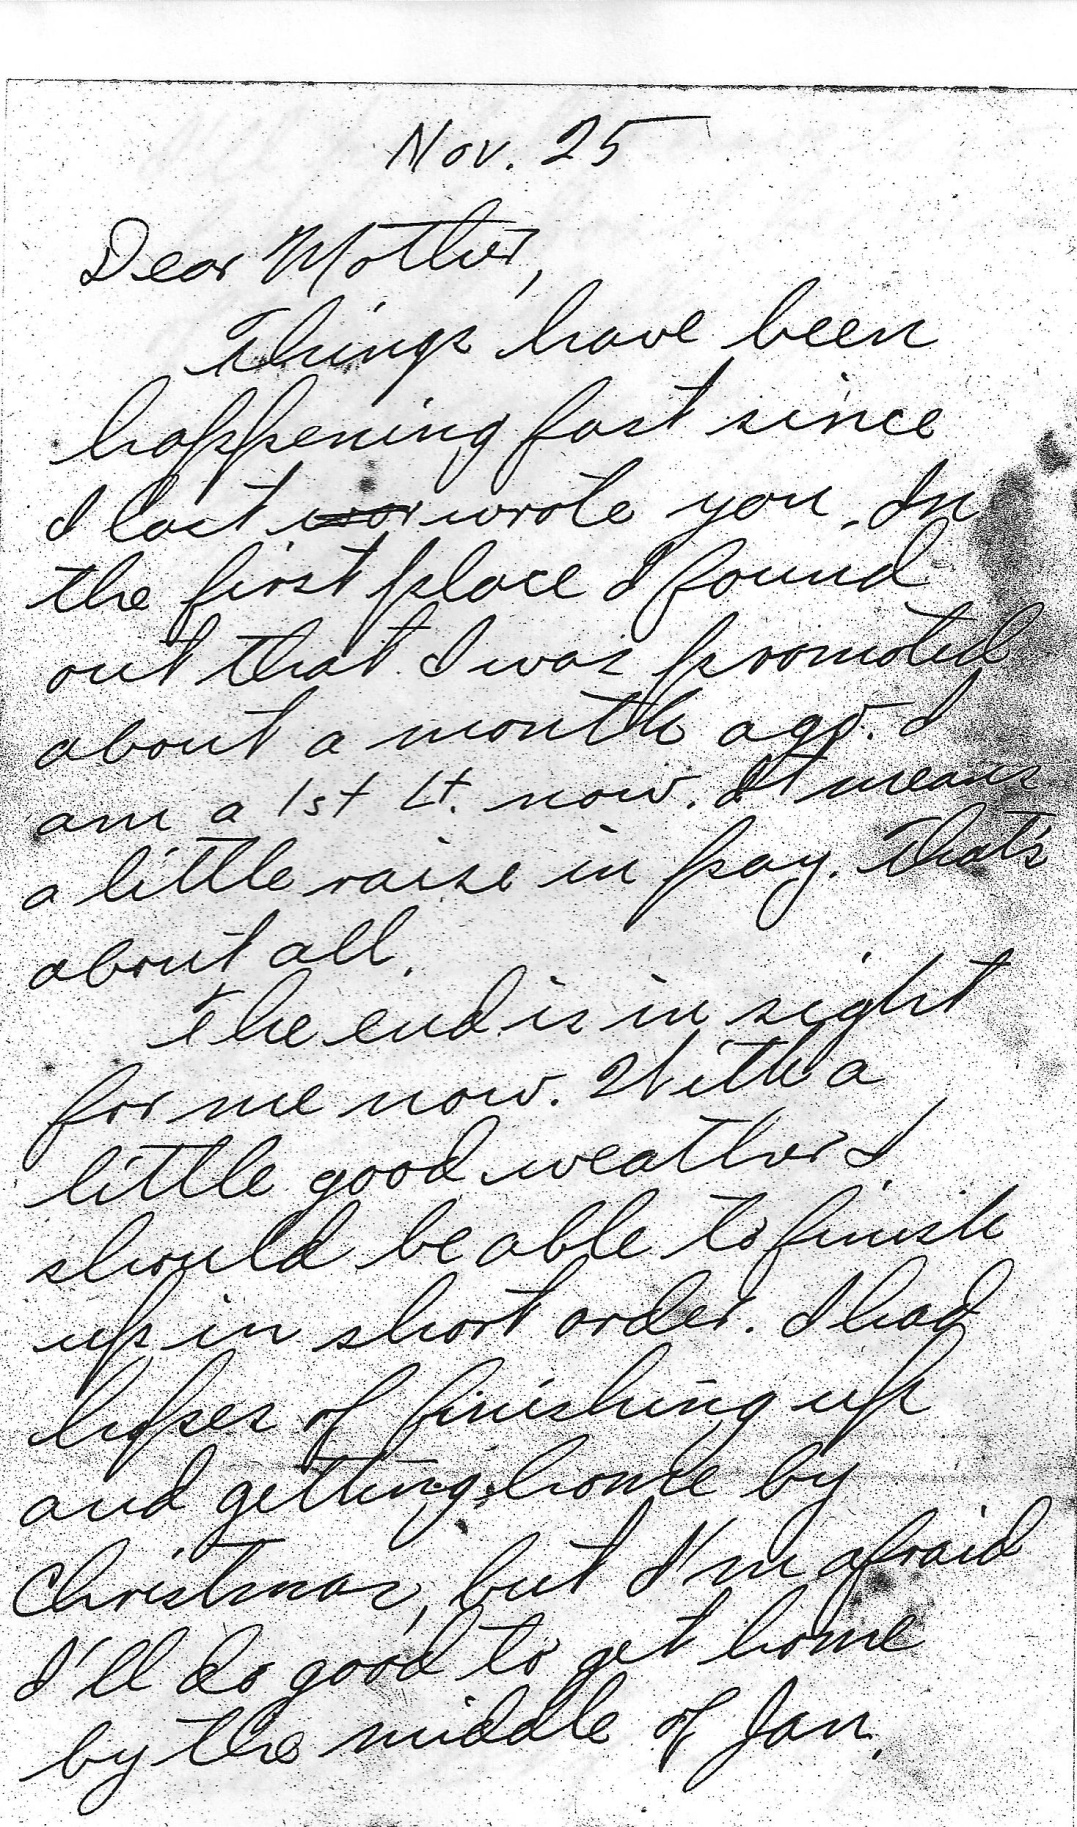 Nov. 25
Dear Mother,
Things have been
happening fast since
I last wrote you. In
the first place I found
out that I was promoted
about a month ago. I
am a 1st Lt. now. It means
a little raise in pay. That's
about all.
The end is in sight
for me now. With a
little good weather I
should be able to finish
up in short order. I had
hopes of finishing up
and getting home by
Christmas, but I'm afraid
I'll do good to get home
by the middle of Jan.